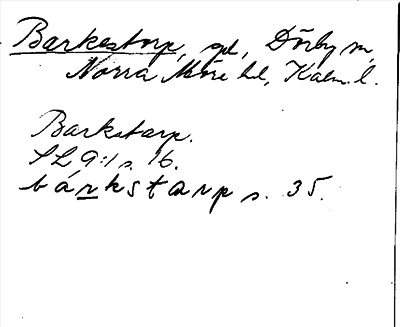 Barkestorp, gd, Dörby sn,
Norra Möre hd, Kalm. l.
Barkstarp.
SL 9:1 s. 16.
bárkstarp s. 35.